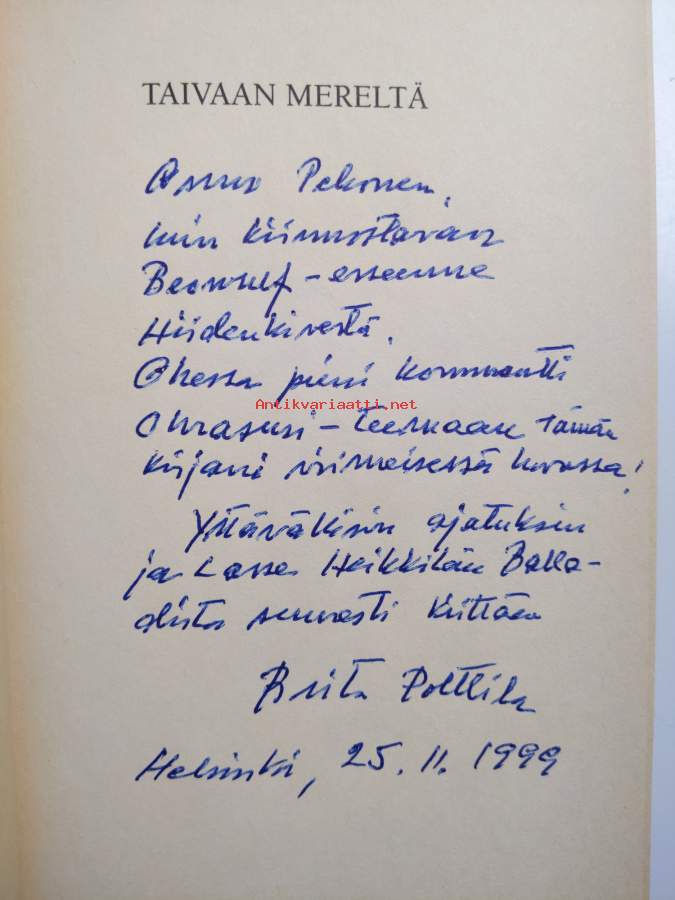 TAIVAAN MERELTÄ
Pekonen,
luin kiinnostavan
Beowulf-esseenne
Hiidenkivestä.
Ohessa pieni kommentti
Antikvariaatti.net
Ohrasusi-teemaan tämän
kirjani viimeisessä luvussa!
Ystävällisin ajatuksin
ja Lasse Heikkilän Balla-
dista suuresti kiittäen
Brita Polttila
Helsinki, 25.11.1999